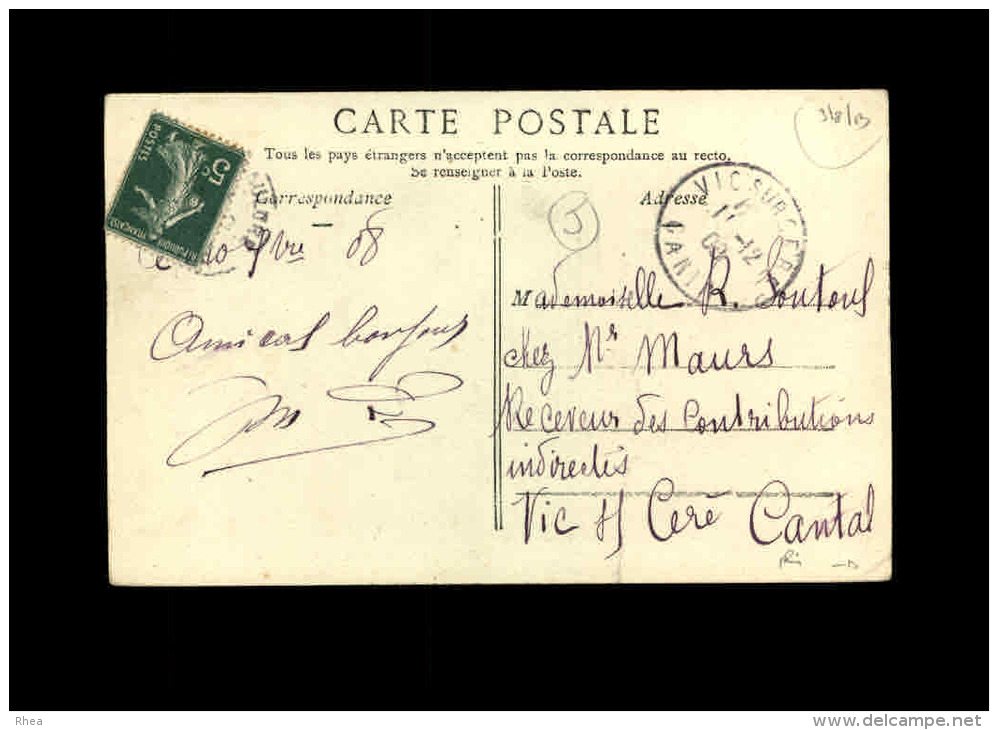 CARTE POSTALE
Tous les pays étrangers n'acceptent pas la correspondance au recto.
Se renseigner à la Poste.
Correspondance
Adresse
5c
POSTES
REPUBLIQUE FRANÇAISE
VIC SUR CERE
11-12
08
CANTAL
3/8/13
5
10 9bre 08
Amical bonjour
Mademoiselle R.
chez Mr Maurs
Receveur des Contributions
indirectes
Vic s/ Cère Cantal
Rhea
www.delcampe.net